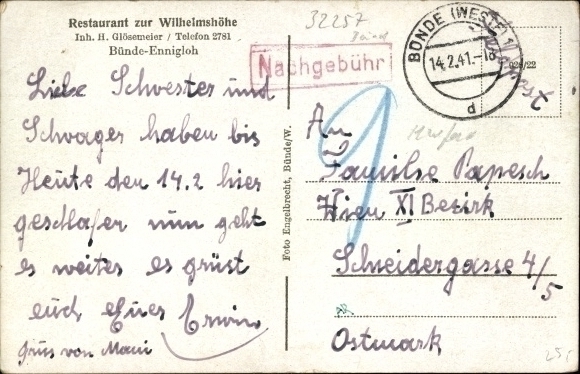 Restaurant zur Wilhelmshöhe
Inh. H. Glösemeier / Telefon 2781
Bünde-Ennigloh
32257
Bünd
Nachgebühr
BÜNDE (WESTF)
14.2.41.-18
d
/22
Liebe Schwester und
Schwager haben bis
Heute den 14.2 hier
geschlafen nun geht
es weiter es grüst
euch Euer Erwin
Grüs von Mani
Foto Engelbrecht, Bünde/W.
9
An
Familie Papesch
Wien XI Bezirk
Schneidergasse 4/5
Ostmark
25,